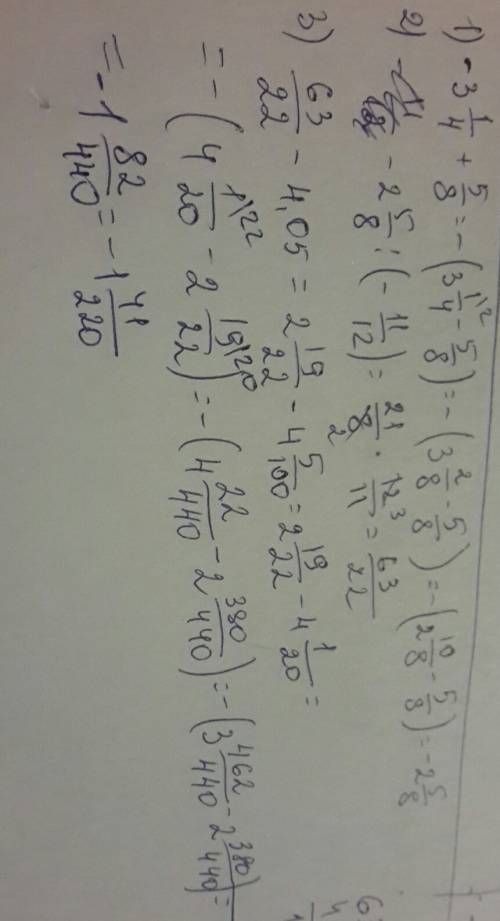 1) -3 1/4 + 5/8 = -(3 1\2/4 - 5/8) = -(3 2/8 - 5/8) = -(2 10/8 - 5/8) = -2 5/8
2) - 2 5/8 : (- 11/12) = 21/8 2 · 12 3/11 = 63/22
3) 63/22 - 4,05 = 2 19/22 - 4 5/100 = 2 19/22 - 4 1/20 =
= -(4 1\22/20 - 2 19\20/22) = -(4 22/440 - 2 380/440) = -(3 462/440 - 2 380/440) =
= -1 82/440 = -1 41/220